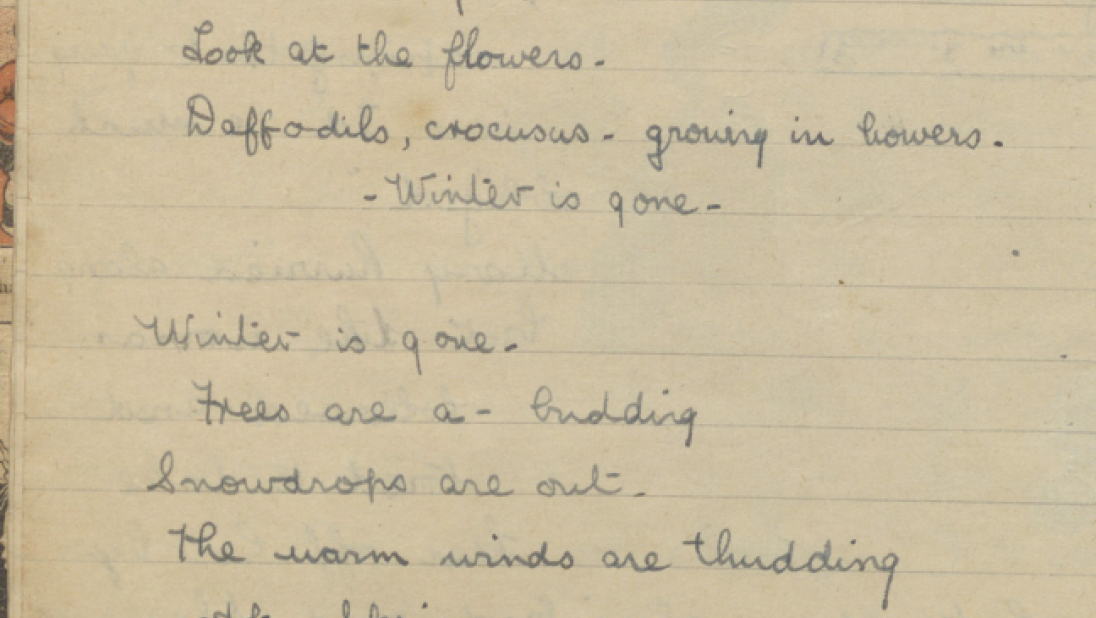 Look at the flowers.
Daffodils, crocusus - growing in bowers.
- Winter is gone -
Winter is gone -
Trees are a - budding
Snowdrops are out.
The warm winds are thudding